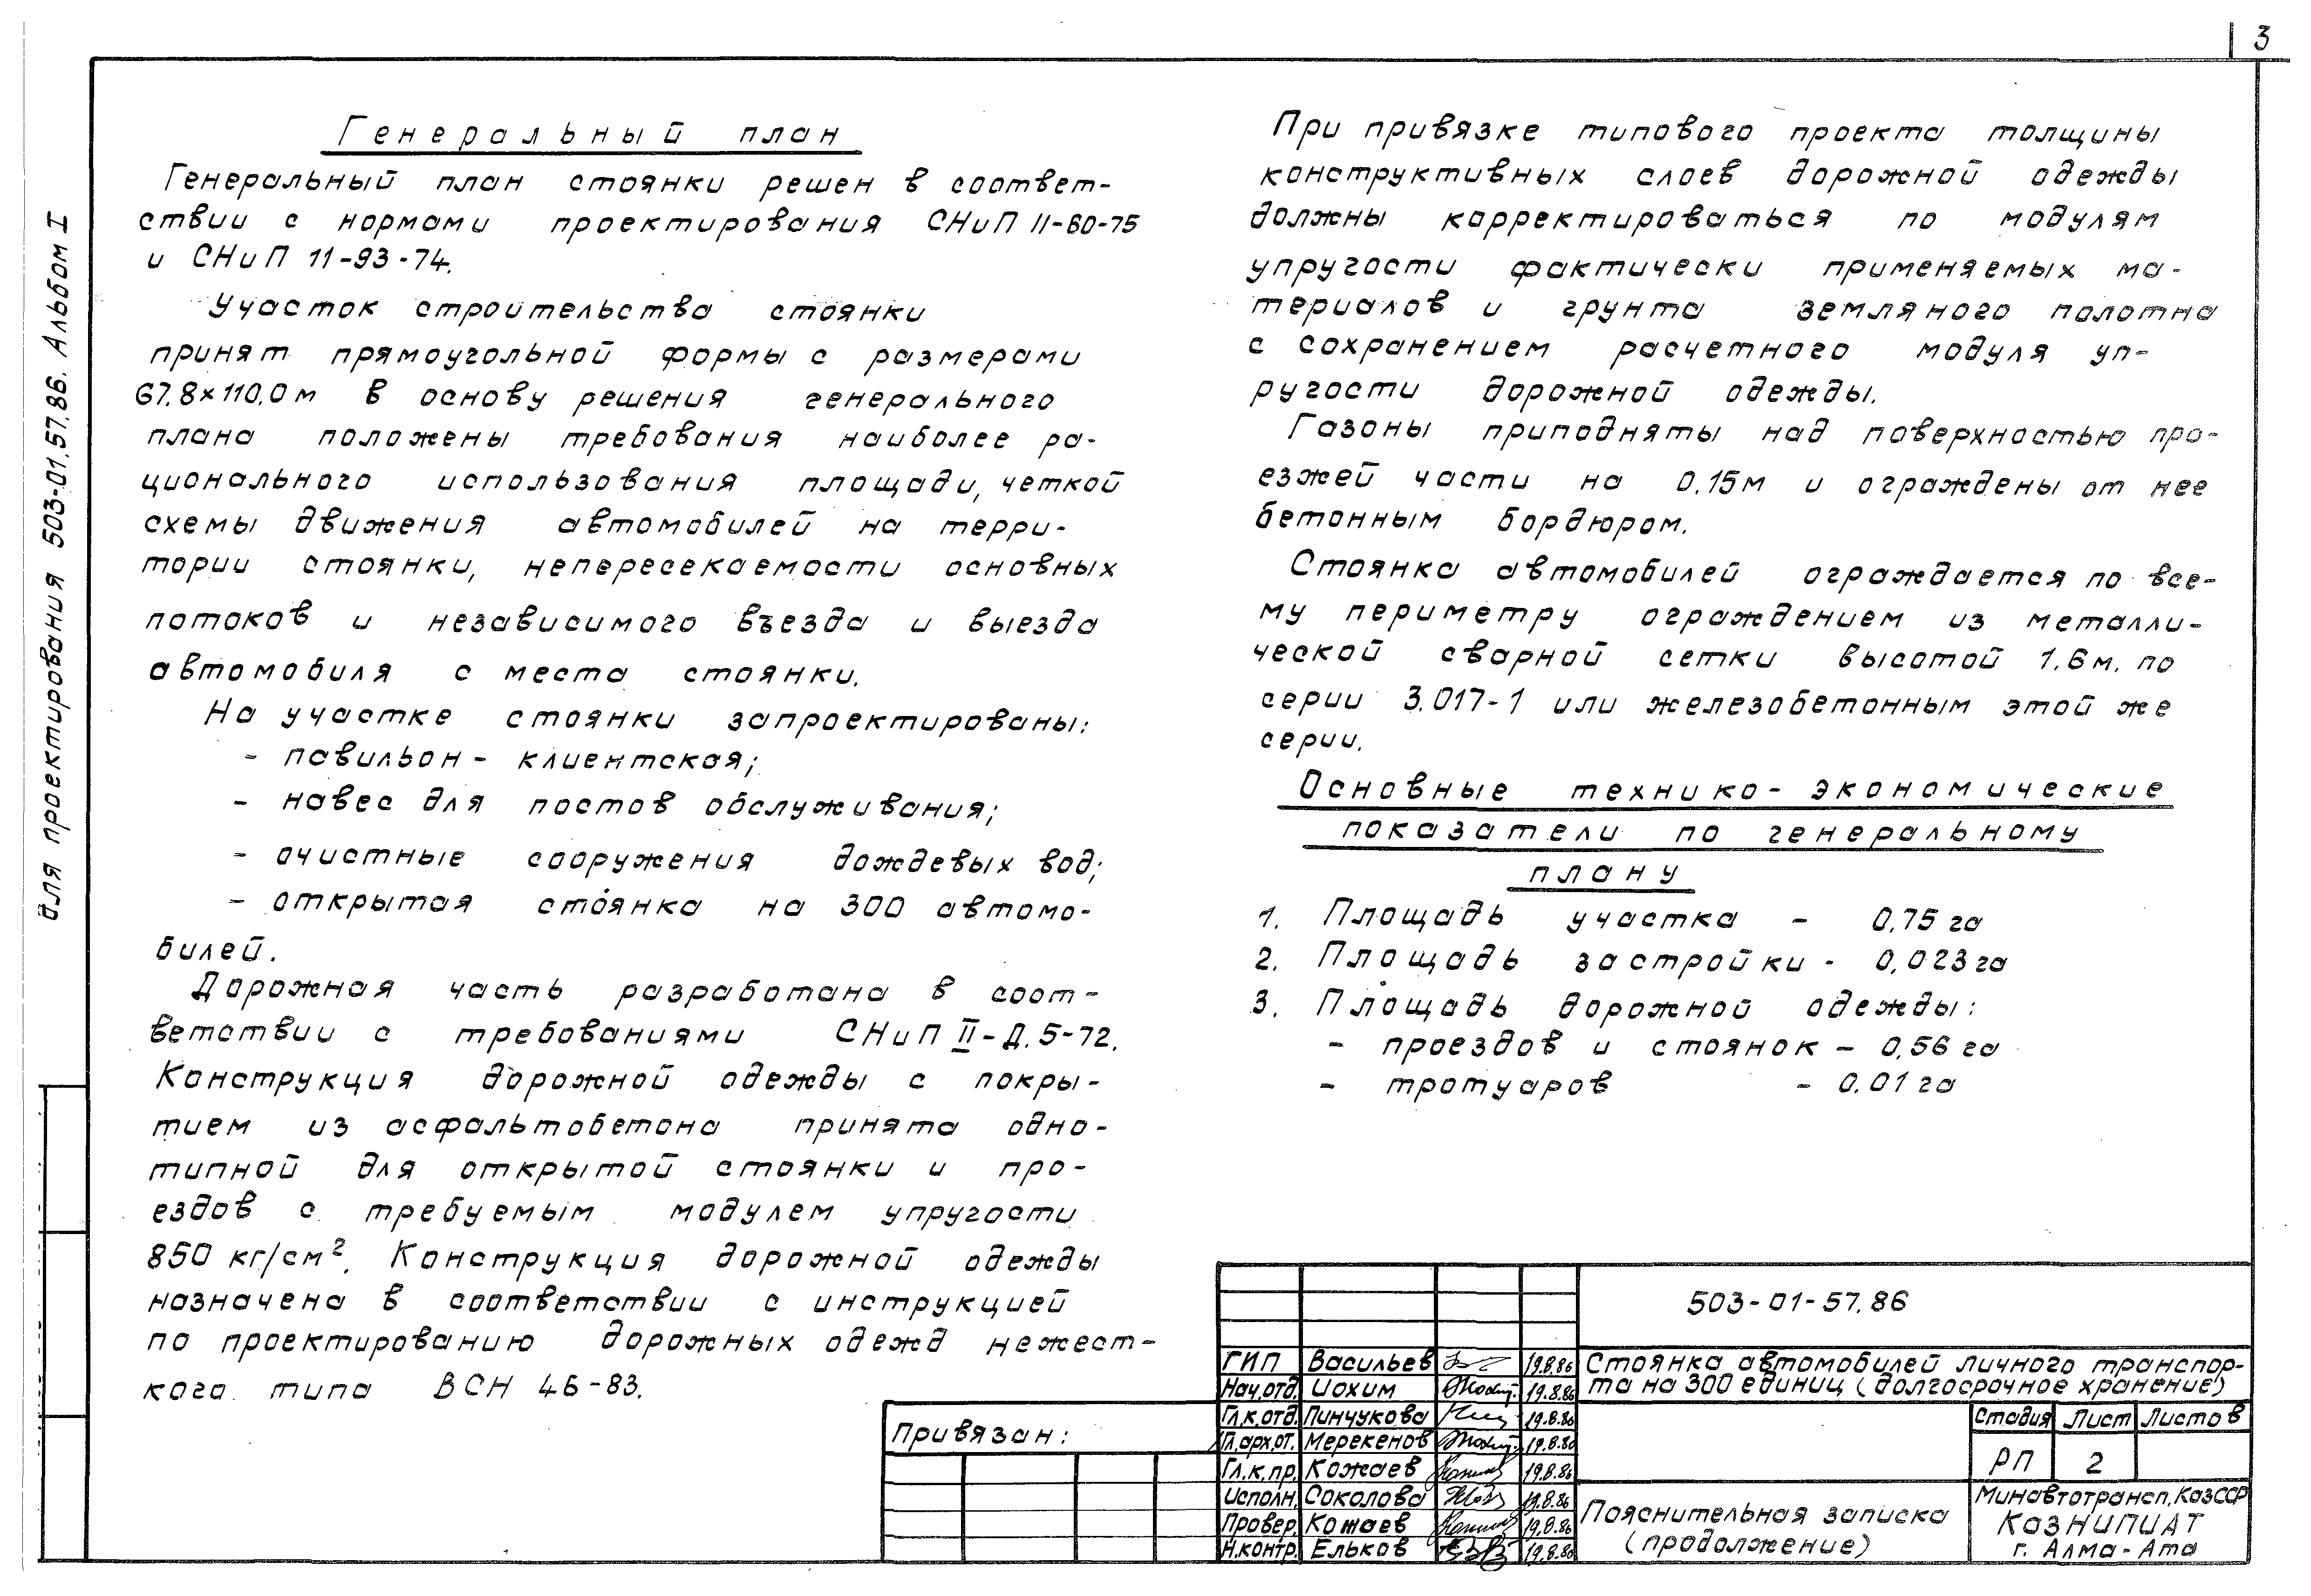 3
для проектирования 503-01.57.86. Альбом I
Генеральный план
Генеральный план стоянки решен в соответ-
ствии с нормами проектирования СНиП II-60-75
и СНиП 11-93-74.
Участок строительства стоянки
принят прямоугольной формы с размерами
67.8×110.0м В основу решения генерального
плана положены требования наиболее ра-
ционального использования площади, четкой
схемы движения автомобилей на терри-
тории стоянки, непересекаемости основных
потоков и независимого въезда и выезда
автомобиля с места стоянки.
На участке стоянки запроектированы:
- павильон - клиентская;
- навес для постов обслуживания;
- очистные сооружения дождевых вод;
- открытая стоянка на 300 автомо-
билей.
Дорожная часть разработана в соот-
ветствии с требованиями СНиП II-Д.5-72.
Конструкция дорожной одежды с покры-
тием из асфальтобетона принята одно-
типной для открытой стоянки и про-
ездов с требуемым модулем упругости
850 кг/см². Конструкция дорожной одежды
назначена в соответствии с инструкцией
по проектированию дорожных одежд нежест-
кого типа ВСН 46-83.
При привязке типового проекта толщины
конструктивных слоев дорожной одежды
должны корректироваться по модулям
упругости фактически применяемых ма-
териалов и грунта земляного полотна
с сохранением расчетного модуля уп-
ругости дорожной одежды.
Газоны приподняты над поверхностью про-
езжей части на 0.15м и ограждены от нее
бетонным бордюром.
Стоянка автомобилей ограждается по все-
му периметру ограждением из металли-
ческой сварной сетки высотой 1.6м. по
серии 3.017-1 или железобетонным этой же
серии.
Основные технико-экономические
показатели по генеральному
плану
1. Площадь участка - 0,75 га
2. Площадь застройки - 0,023 га
3. Площадь дорожной одежды:
- проездов и стоянок - 0,56 га
- тротуаров - 0.01 га
Привязан:
503-01-57.86
ГИП Васильев 19.8.86
Нач.отд. Иохим 19.8.86
Гл.к.отд. Пинчукова 19.8.86
Гл.арх.от. Мерекенов 19.8.86
Гл.к.пр. Кожаев 19.8.86
Исполн. Соколова 19.8.86
Провер. Кожаев 19.8.86
Н.контр. Ельков 19.8.86
Стоянка автомобилей личного транспор-
та на 300 единиц (долгосрочное хранение)
Стадия Лист Листов
РП 2
Пояснительная записка
(продолжение)
Минавтотрансп. КазССР
КАЗНИПИАТ
г. Алма-Ата